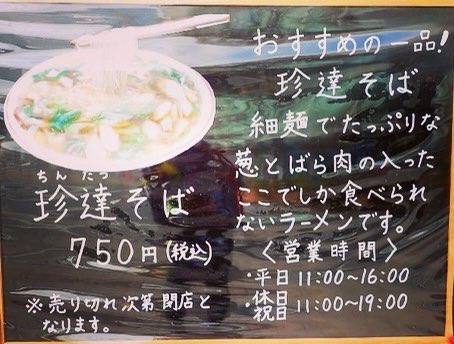 おすすめの一品!
珍達そば
細麺でたっぷりな
葱とばら肉の入った
ここでしか食べられ
ないラーメンです。
〈営業時間〉
・平日11:00~16:00
・休日
祝日11:00~19:00
ちんたつ
珍達そば
750円(税込)
※売り切れ次第閉店と
なります。